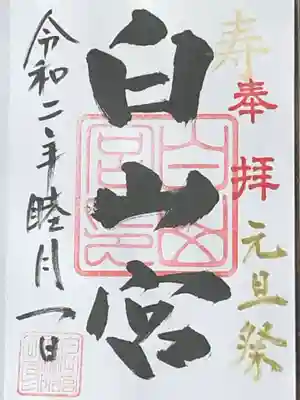 寿
奉拝
元旦祭
白山宮
令和二年睦月一日